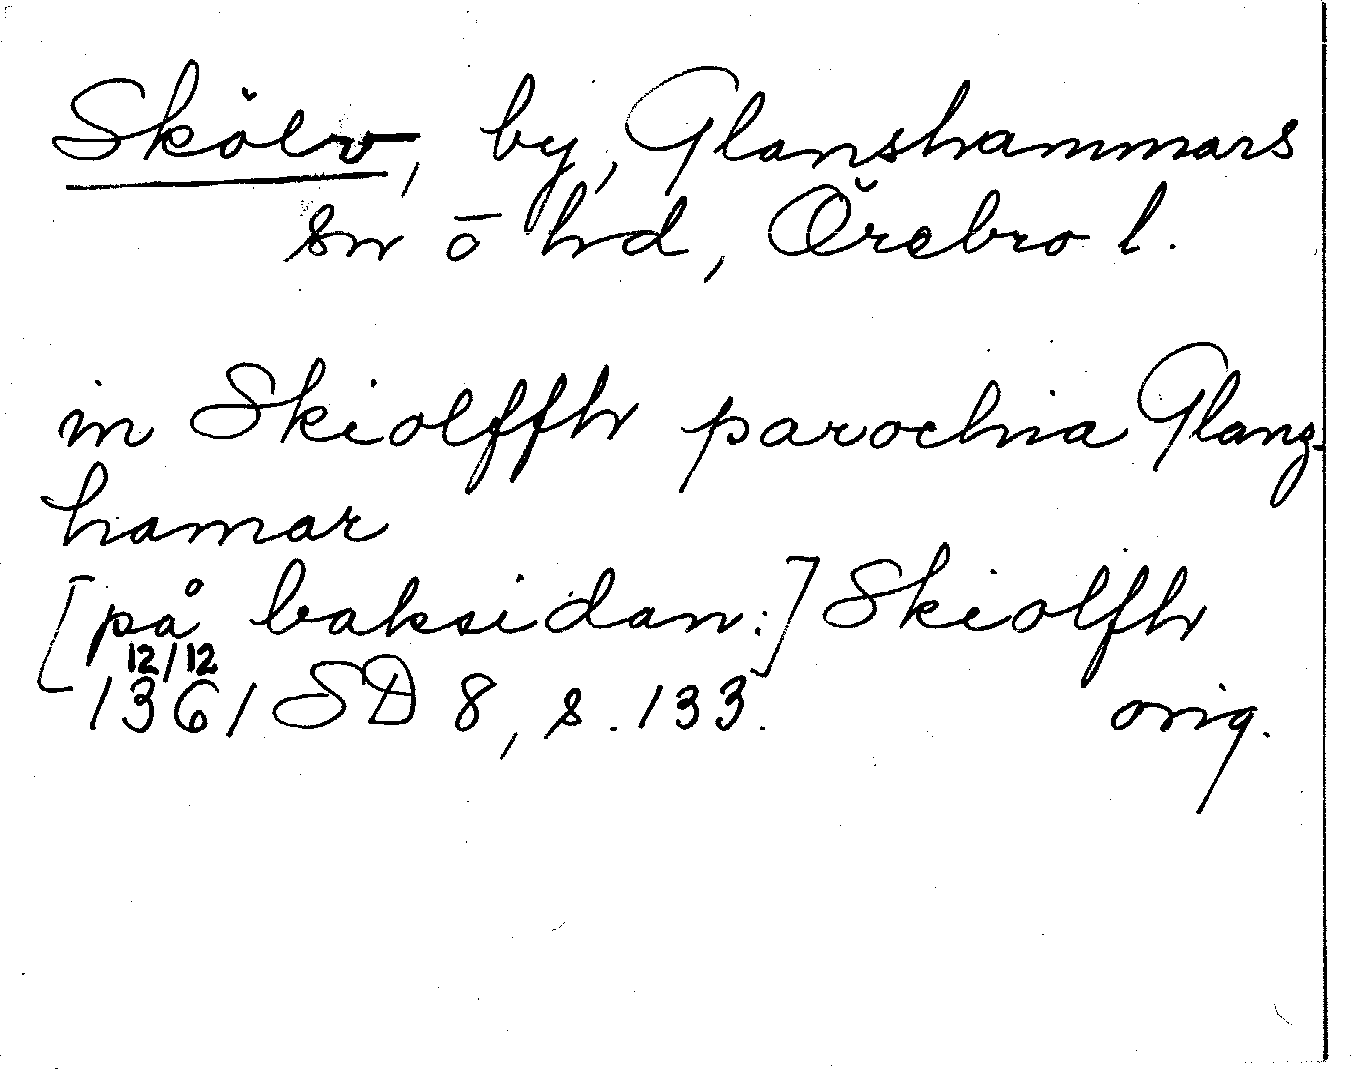 Skölv, by, Glanshammars
sn ō hd, Örebro l.
in Skiolffh parochia Glanz-
hamar
[på baksidan:] Skiolfh
12/12
1361 SD 8, s. 133. orig.